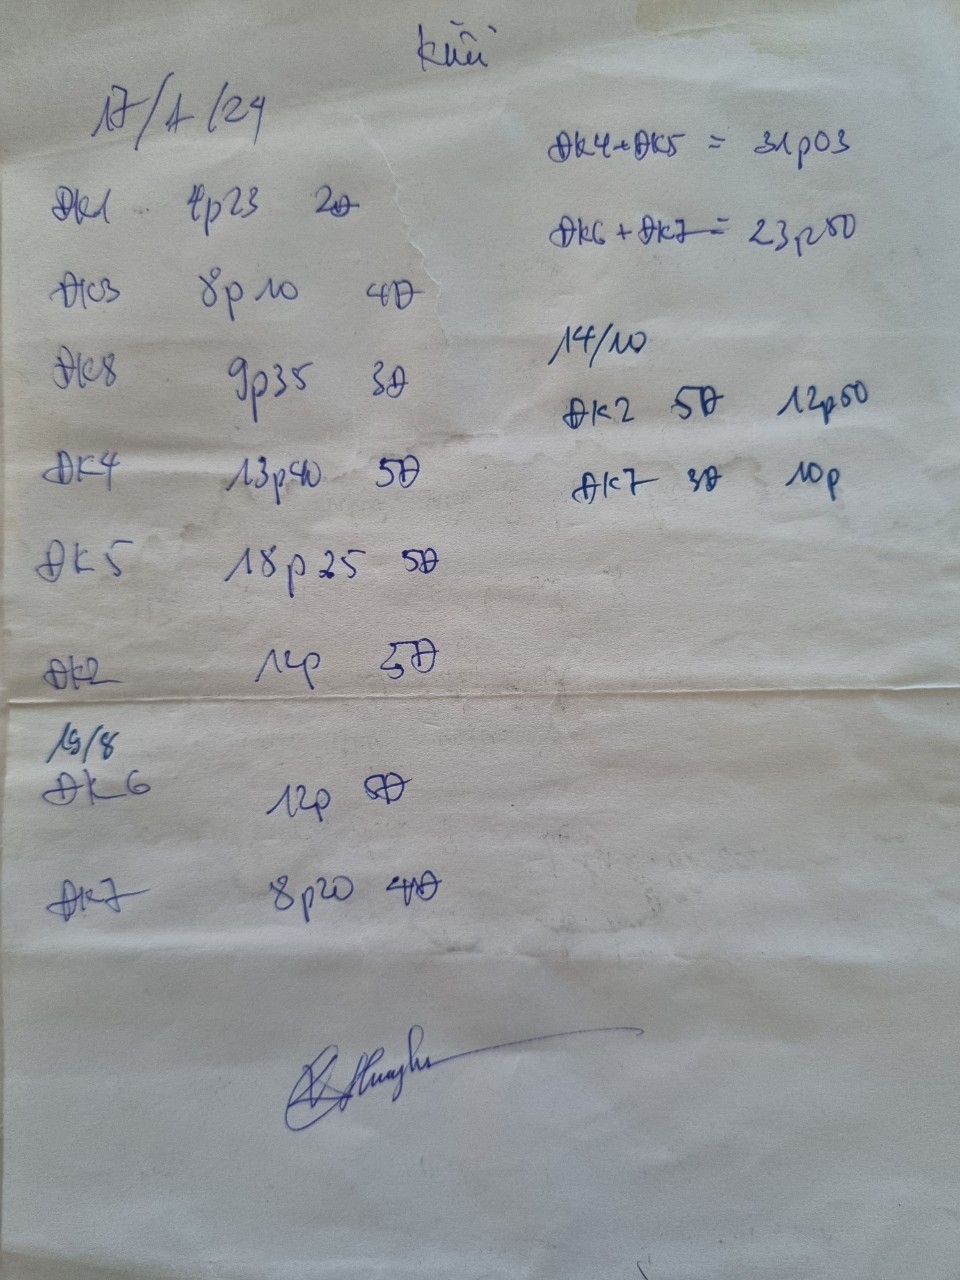 17/1/24
ĐK1 4p23 2Đ
ĐK3 8p10 4Đ
ĐK8 9p35 3Đ
ĐK4 13p40 5Đ
ĐK5 18p25 5Đ
ĐK2 12p 5Đ
19/8
ĐK6 12p 5Đ
ĐK7 8p20 4Đ
ĐK4+ĐK5 = 31p03
ĐK6+ĐK7= 23p50
14/10
ĐK2 5Đ 12p50
ĐK7 3Đ 10p